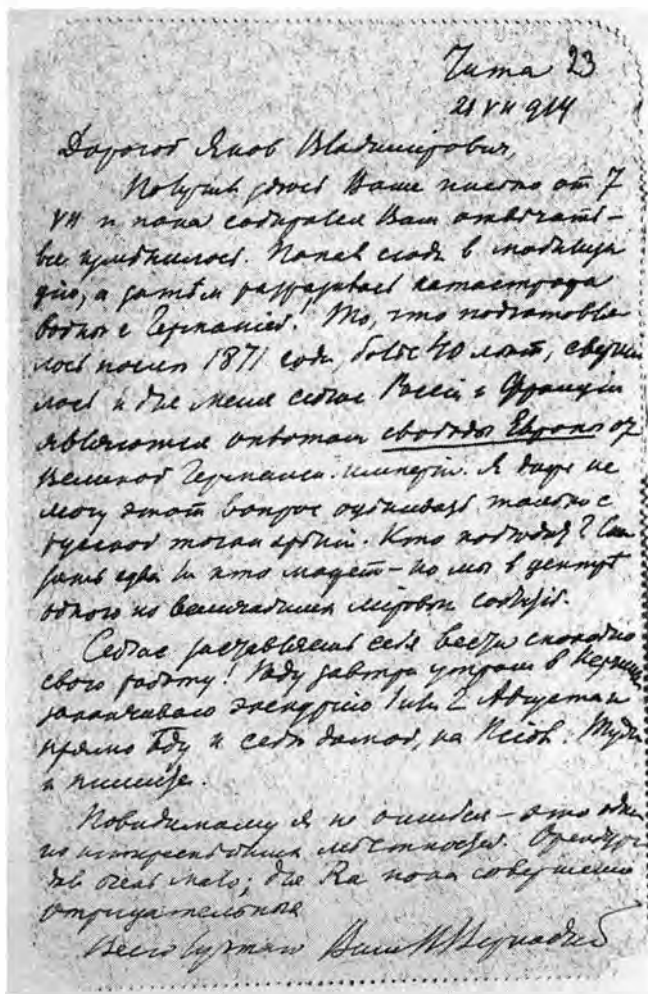 Чита 23
21 VII 914
Дорогой Яков Владимирович,
Получив здесь Ваше письмо от 7
VII и пока собирался Вам отвѣчать –
все измѣнилось. Попав сюда в мобилиза
цію, а затѣм разразилась катастрофа
войны с Германіей! То, что подготовля
лось послѣ 1871 года, болѣе 40 лѣт, сверши
лось и для меня сейчас Россія и Франція
являются оплотом свободы Европы от
Великой Германск. имперіи. Я даже не
могу этот вопрос оцѣнивать только с
русской точки зрѣнія. Кто побѣдит? Ска
зать едва ли кто может – но мы в центрѣ
одного из величайших міровых событій.
Сейчас заставляешь себя вести спокойно
свою работу! Ѣду завтра утром в
заканчиваю экскурсію 1 или 2 Августа и
прямо ѣду к себѣ домой, на Кіев. Туда
и пишите.
Повидимому я не ошибся – это одна
из интереснѣйших мѣстностей.
очень мало; для Ra пока совершенно
отрицательные
Всего Ваш В Вернадский